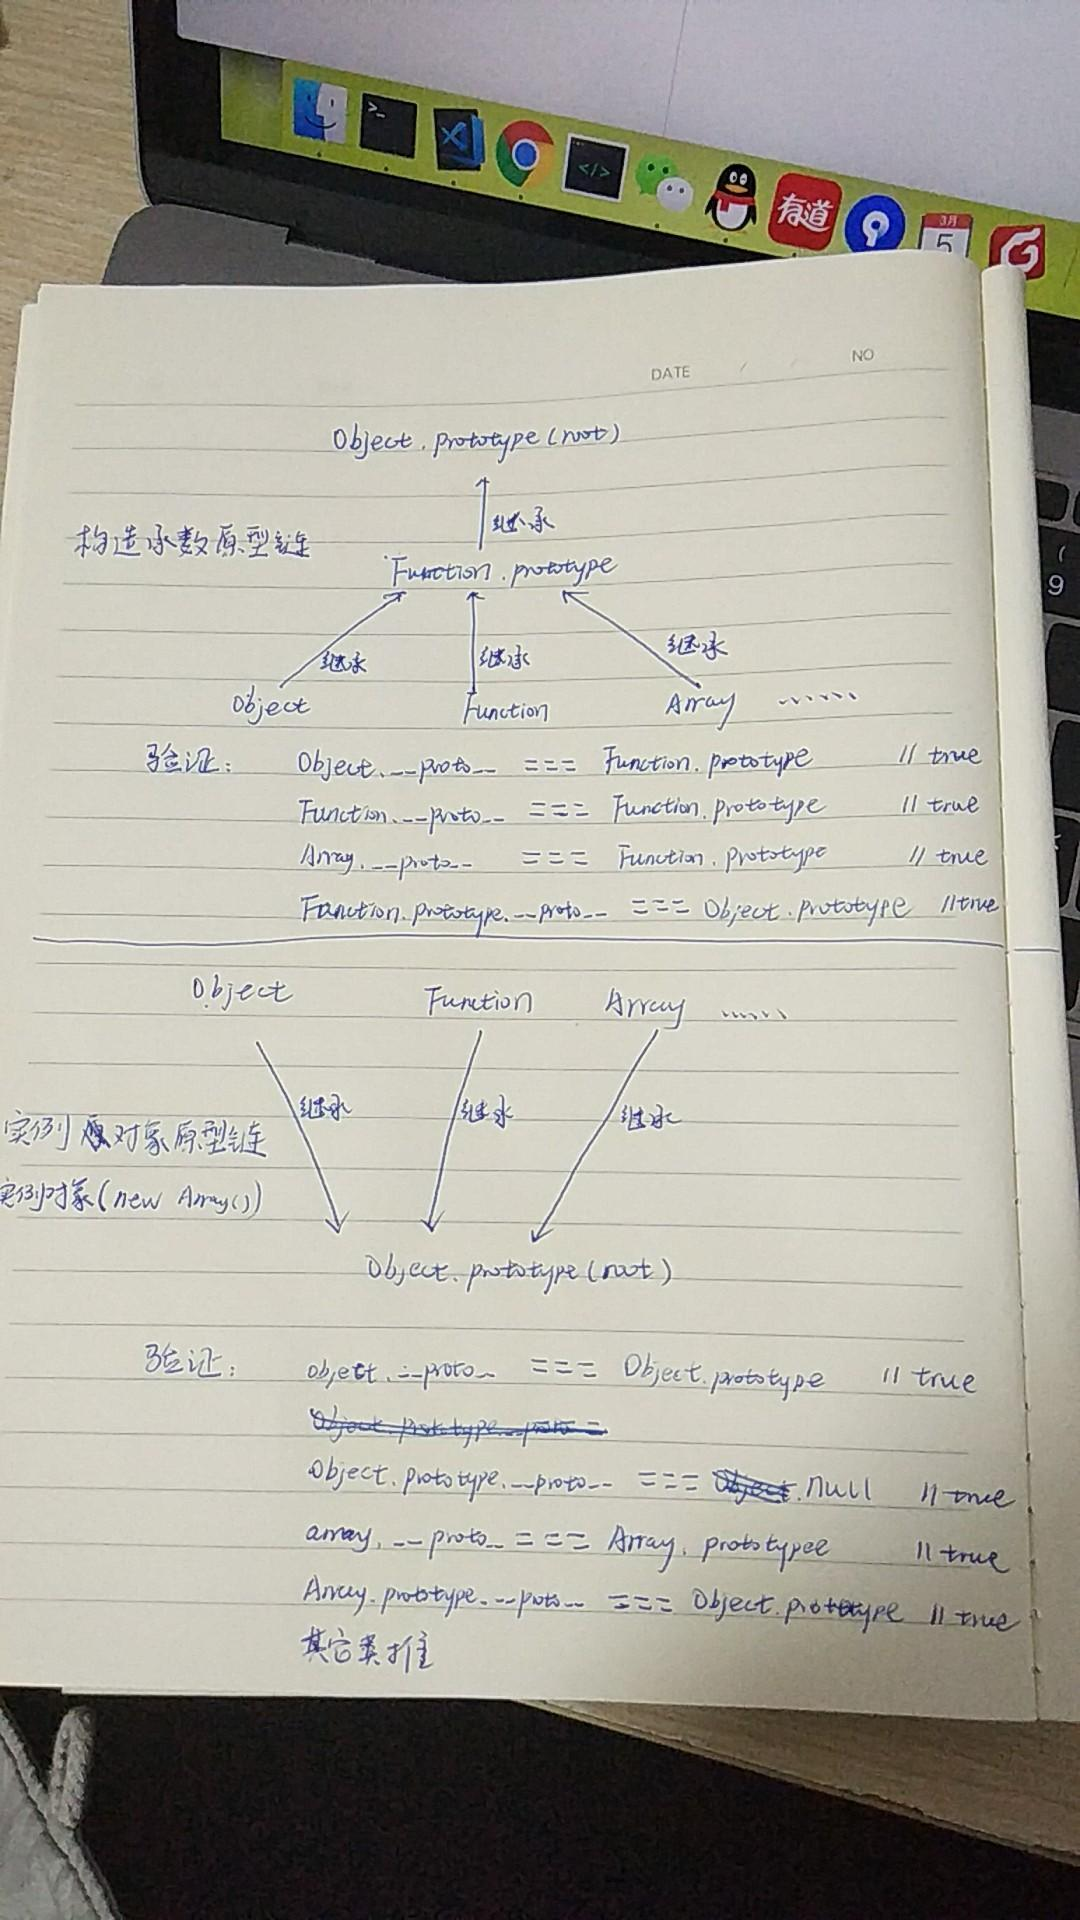 >_
</>
有道
3月
5
(
9
DATE / / NO
Object.prototype(root)
继承
构造承数原型链
Function.prototype
继承 继承 继承
Object Function Array ......
验证: Object.__proto__ === Function.prototype // true
Function.__proto__ === Function.prototype // true
Array.__proto__ === Function.prototype // true
Function.prototype.__proto__ === Object.prototype // true
Object Function Array ......
继承 继承 继承
实例对象原型链
实例对象(new Array())
Object.prototype(root)
验证: object.__proto__ === Object.prototype // true
Object.prototype.__proto__ =
Object.prototype.__proto__ === Object.null // true
array.__proto__ === Array.prototypee // true
Array.prototype.__proto__ === Object.prototype // true
其它类推